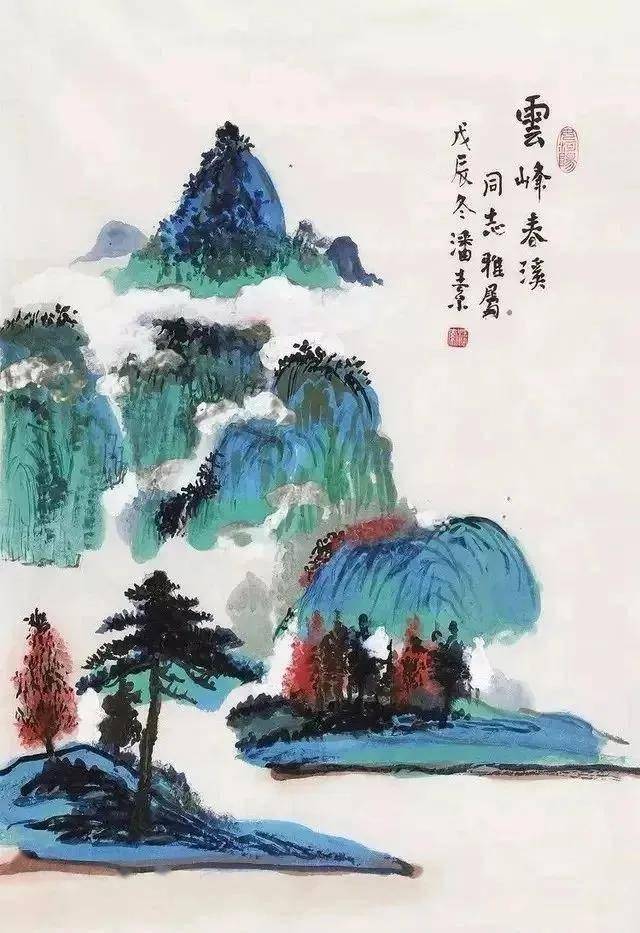 雲峰春溪
同志雅屬
戊辰冬潘素